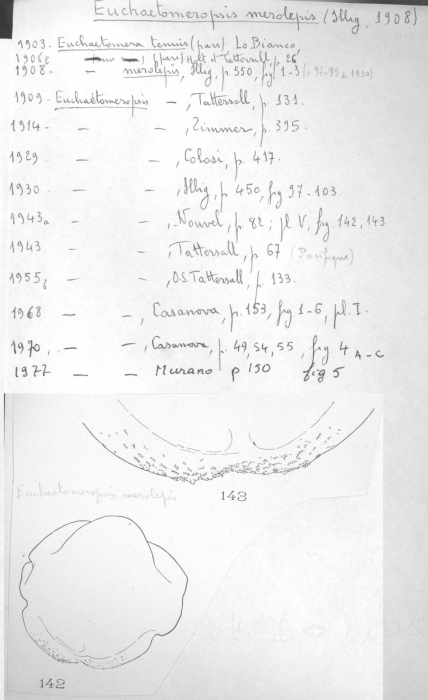 Euchaetomeropsis merolepis (Illig, 1908)
1903 - Euchaetomera tenuis (pars) Lo Bianco,
1906 — — (pars) Holt et Tattersall, p. 26
1908 - — merolepis, Illig, p. 550, fig 1-3
1909 - Euchaetomeropsis —, Tattersall, p. 131.
1914 - — —, Zimmer, p. 395.
1929 — —, Colosi, p. 417.
1930 — —, Illig, p. 450, fig 97-103.
1943a — —, Nouvel, p. 82; pl. V, fig. 142, 143
1943 — —, Tattersall, p. 67 (Pacifique)
1955 — —, O.S. Tattersall, p. 133.
1968 — —, Casanova, p. 153, fig 1-6, pl. I.
1970, — —, Casanova, p. 49, 54, 55, fig 4 A-C
1977 — — Murano p 150 fig 5
Euchaetomeropsis merolepis
143
142